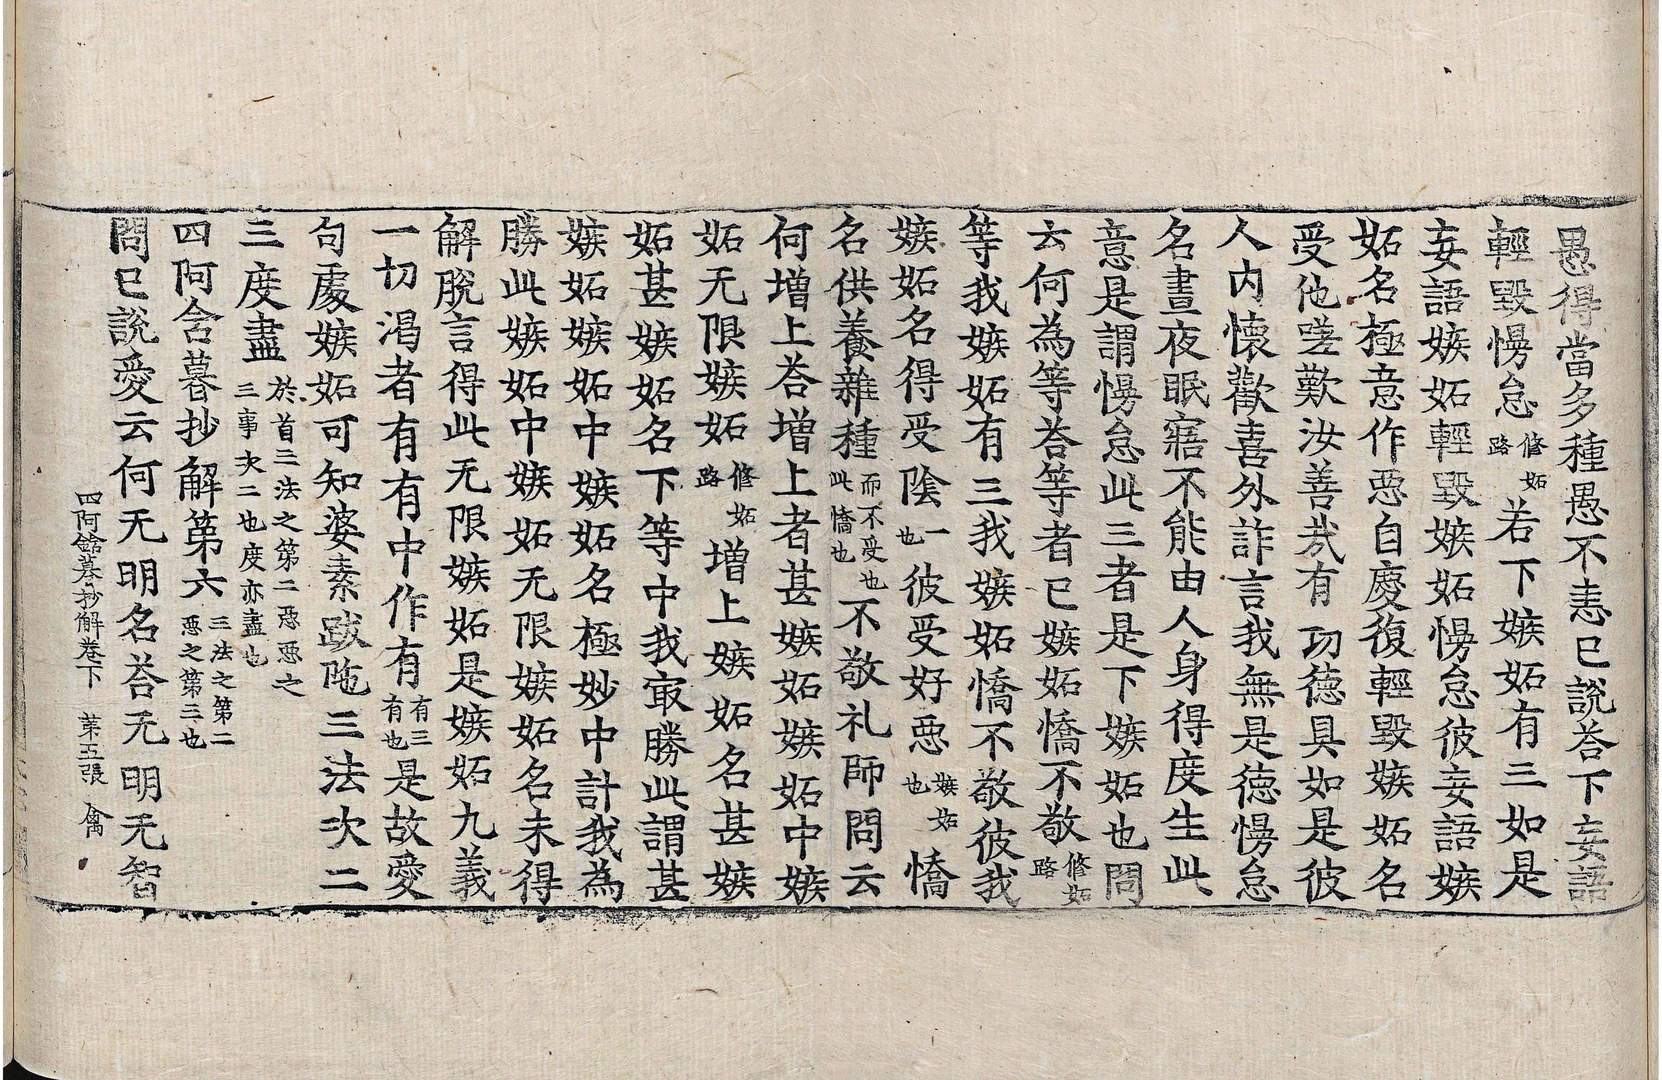 愚得當多種愚不恚已說荅下妄語
輕毀慢怠修妬路若下嫉妬有三如是
妄語嫉妬輕毀嫉妬慢怠彼妄語嫉
妬名極意作惡自慶復輕毀嫉妬名
受他嗟歎汝善哉有功德具如是彼
人内懷歡喜外詐言我無是德慢怠
名晝夜眠寤不能由人身得度生此
意是謂慢怠此三者是下嫉妬也問
云何為等荅等者已嫉妬憍不敬修妬路
等我嫉妬有三我嫉妬憍不敬彼我
嫉妬名得受陰一也彼受好惡嫉妬也憍
名供養雜種而不受也此憍也不敬礼師問云
何增上荅增上者甚嫉妬嫉妬中嫉
妬无限嫉妬修妬路增上嫉妬名甚嫉
妬甚嫉妬名下等中我㝡勝此謂甚
嫉妬嫉妬中嫉妬名極妙中計我為
勝此嫉妬中嫉妬无限嫉妬名未得
解脫言得此无限嫉妬是嫉妬九義
一切渴者有有中作有有三有也是故愛
句處嫉妬可知婆素跋陁三法次二
三度盡於首三法之第二惡惡之三事次二也度亦盡也
四阿含暮抄解第六三法之第二惡之第三也
問已說愛云何无明名荅无明无智
四阿鋡暮抄解卷下 第五張 禽